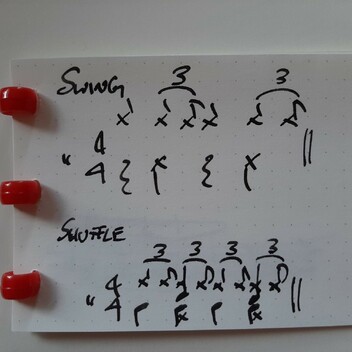 SWING
3 3
4
4
SHUFFLE
3 3 3 3
4
4